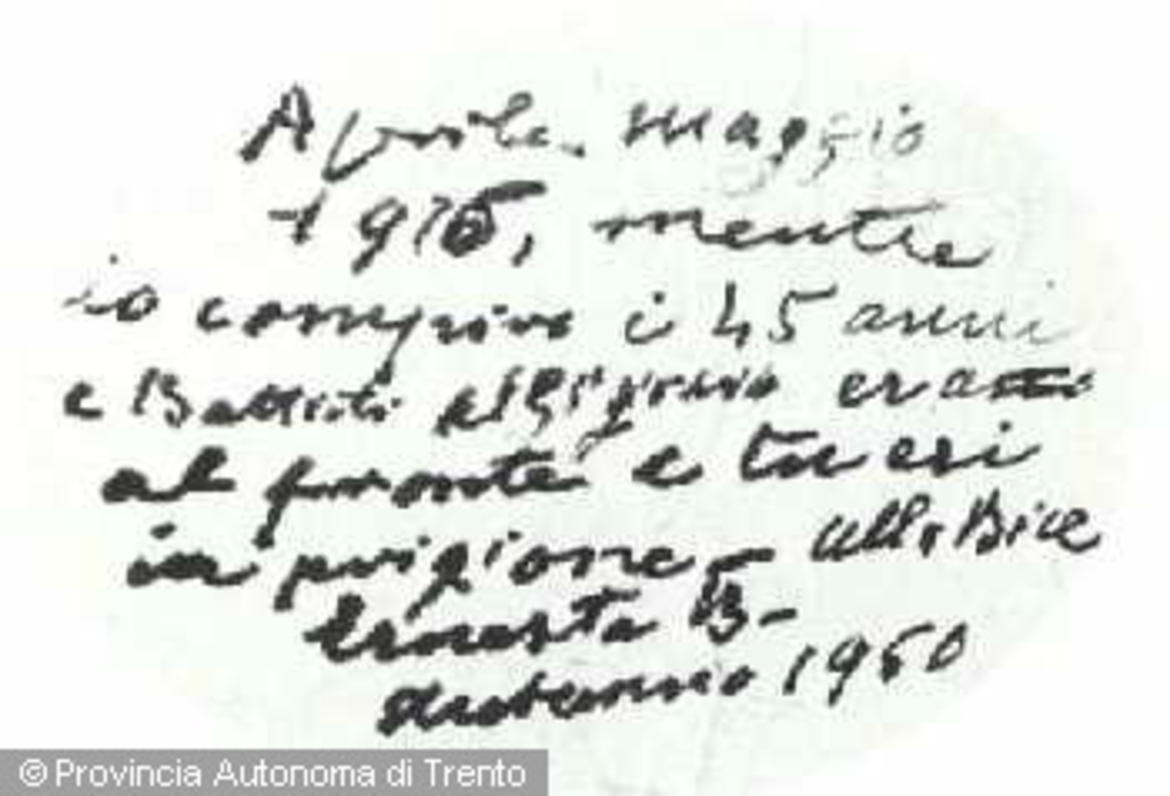 Aprile. maggio
1916, mentre
io compivo i 45 anni
e Battisti era
al fronte e tu eri
in prigione – alla Bice
Ernesta B-
autunno 1950
© Provincia Autonoma di Trento